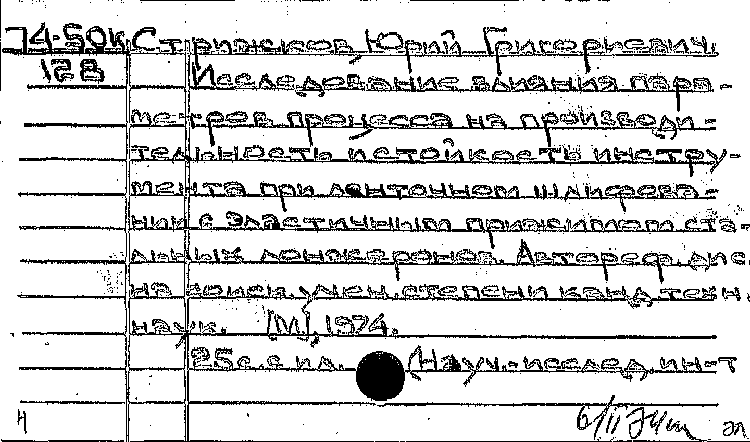 74-50к Стрижков Юрий Григорьевич.
128 Исследование влияния пара-
метров процесса на производи-
тельность и стойкость инстру-
мента при ленточном шлифова-
нии с эластичным прижимом ста-
льных лонжеронов. Автореф. дис.
на соиск. учен. степени канд. техн.
наук. [М], 1974.
25 с. с ил. (Науч.-исслед. ин-т